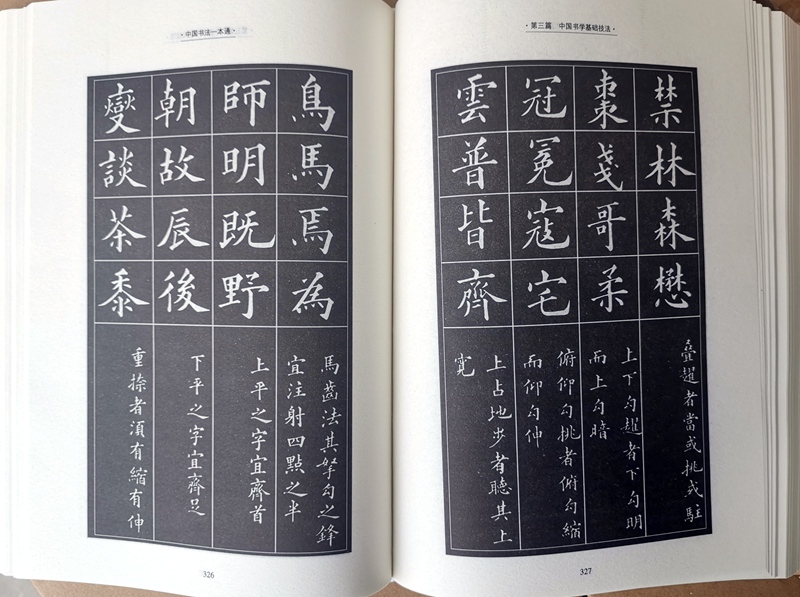 ·中国书法一本通·
鳥馬焉為
馬齒法其挐勾之鋒
宜注射四點之半
師明既野
上平之字宜齊首
朝故辰後
下平之字宜齊足
變談茶黍
重捺者須有縮有伸
326
·第三篇 中国书学基础技法·
禁林森懋
疊趯者當或挑或駐
棗戔哥柔
上下勾趯者下勾明
而上勾暗
冠冕寇宅
俯仰勾挑者俯勾縮
而仰勾伸
雲普皆齊
上占地步者聽其上
寬
327